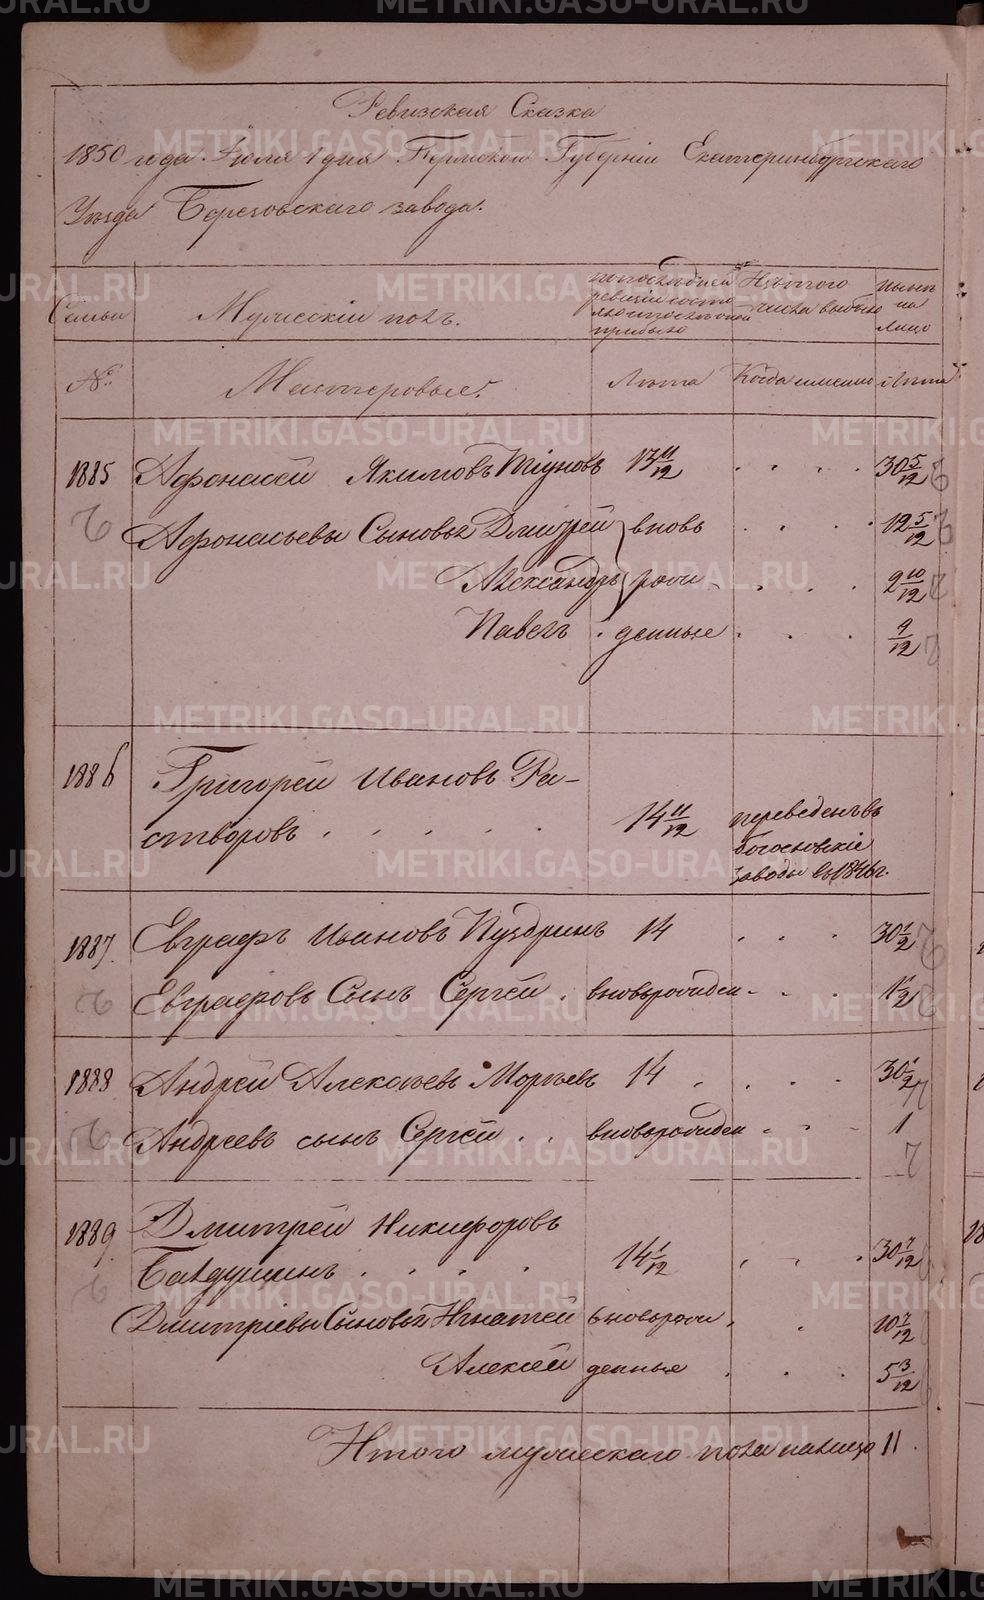 Ревизская Сказка
1850 года Іюля 1 дня Пермской Губерніи Екатеринбургскаго
Уѣзда Березовскаго завода.
Семьи
Мужескій полъ.
по послѣдней ревизіи состояло и послѣ оной прибыло
Изъ того числа выбыло
нынѣ на лицо
№
Мастеровые.
Лѣта
Когда именно
Лѣта
1885 Афонасей Якимовъ Тіуновъ 13 11/12 30 5/12
Афонасьевы Сыновья Дмитрей вновь 12 5/12
Александръ рож- 2 10/12
Павелъ денные 9/12
1886 Григорей Ивановъ Ра-
створовъ 14 11/12 переведенъ въ
богословскіе
заводы въ 1846 г.
1887 Евграфъ Ивановъ Пуздринъ 14 30 1/2
Евграфовъ Сынъ Сергей вновьрожден 1 1/2
1888 Андрей Алексѣевъ 14 30 1/2
Андреевъ сынъ Сергей вновьрожден 1
1889 Дмитрей Никифоровъ
14 1/12 30 7/12
Дмитріевы Сыновья Игнатей вновьрож 10 7/12
Алексей денные 5 3/12
Итого мужескаго пола налицо 11.
METRIKI.GASO-URAL.RU